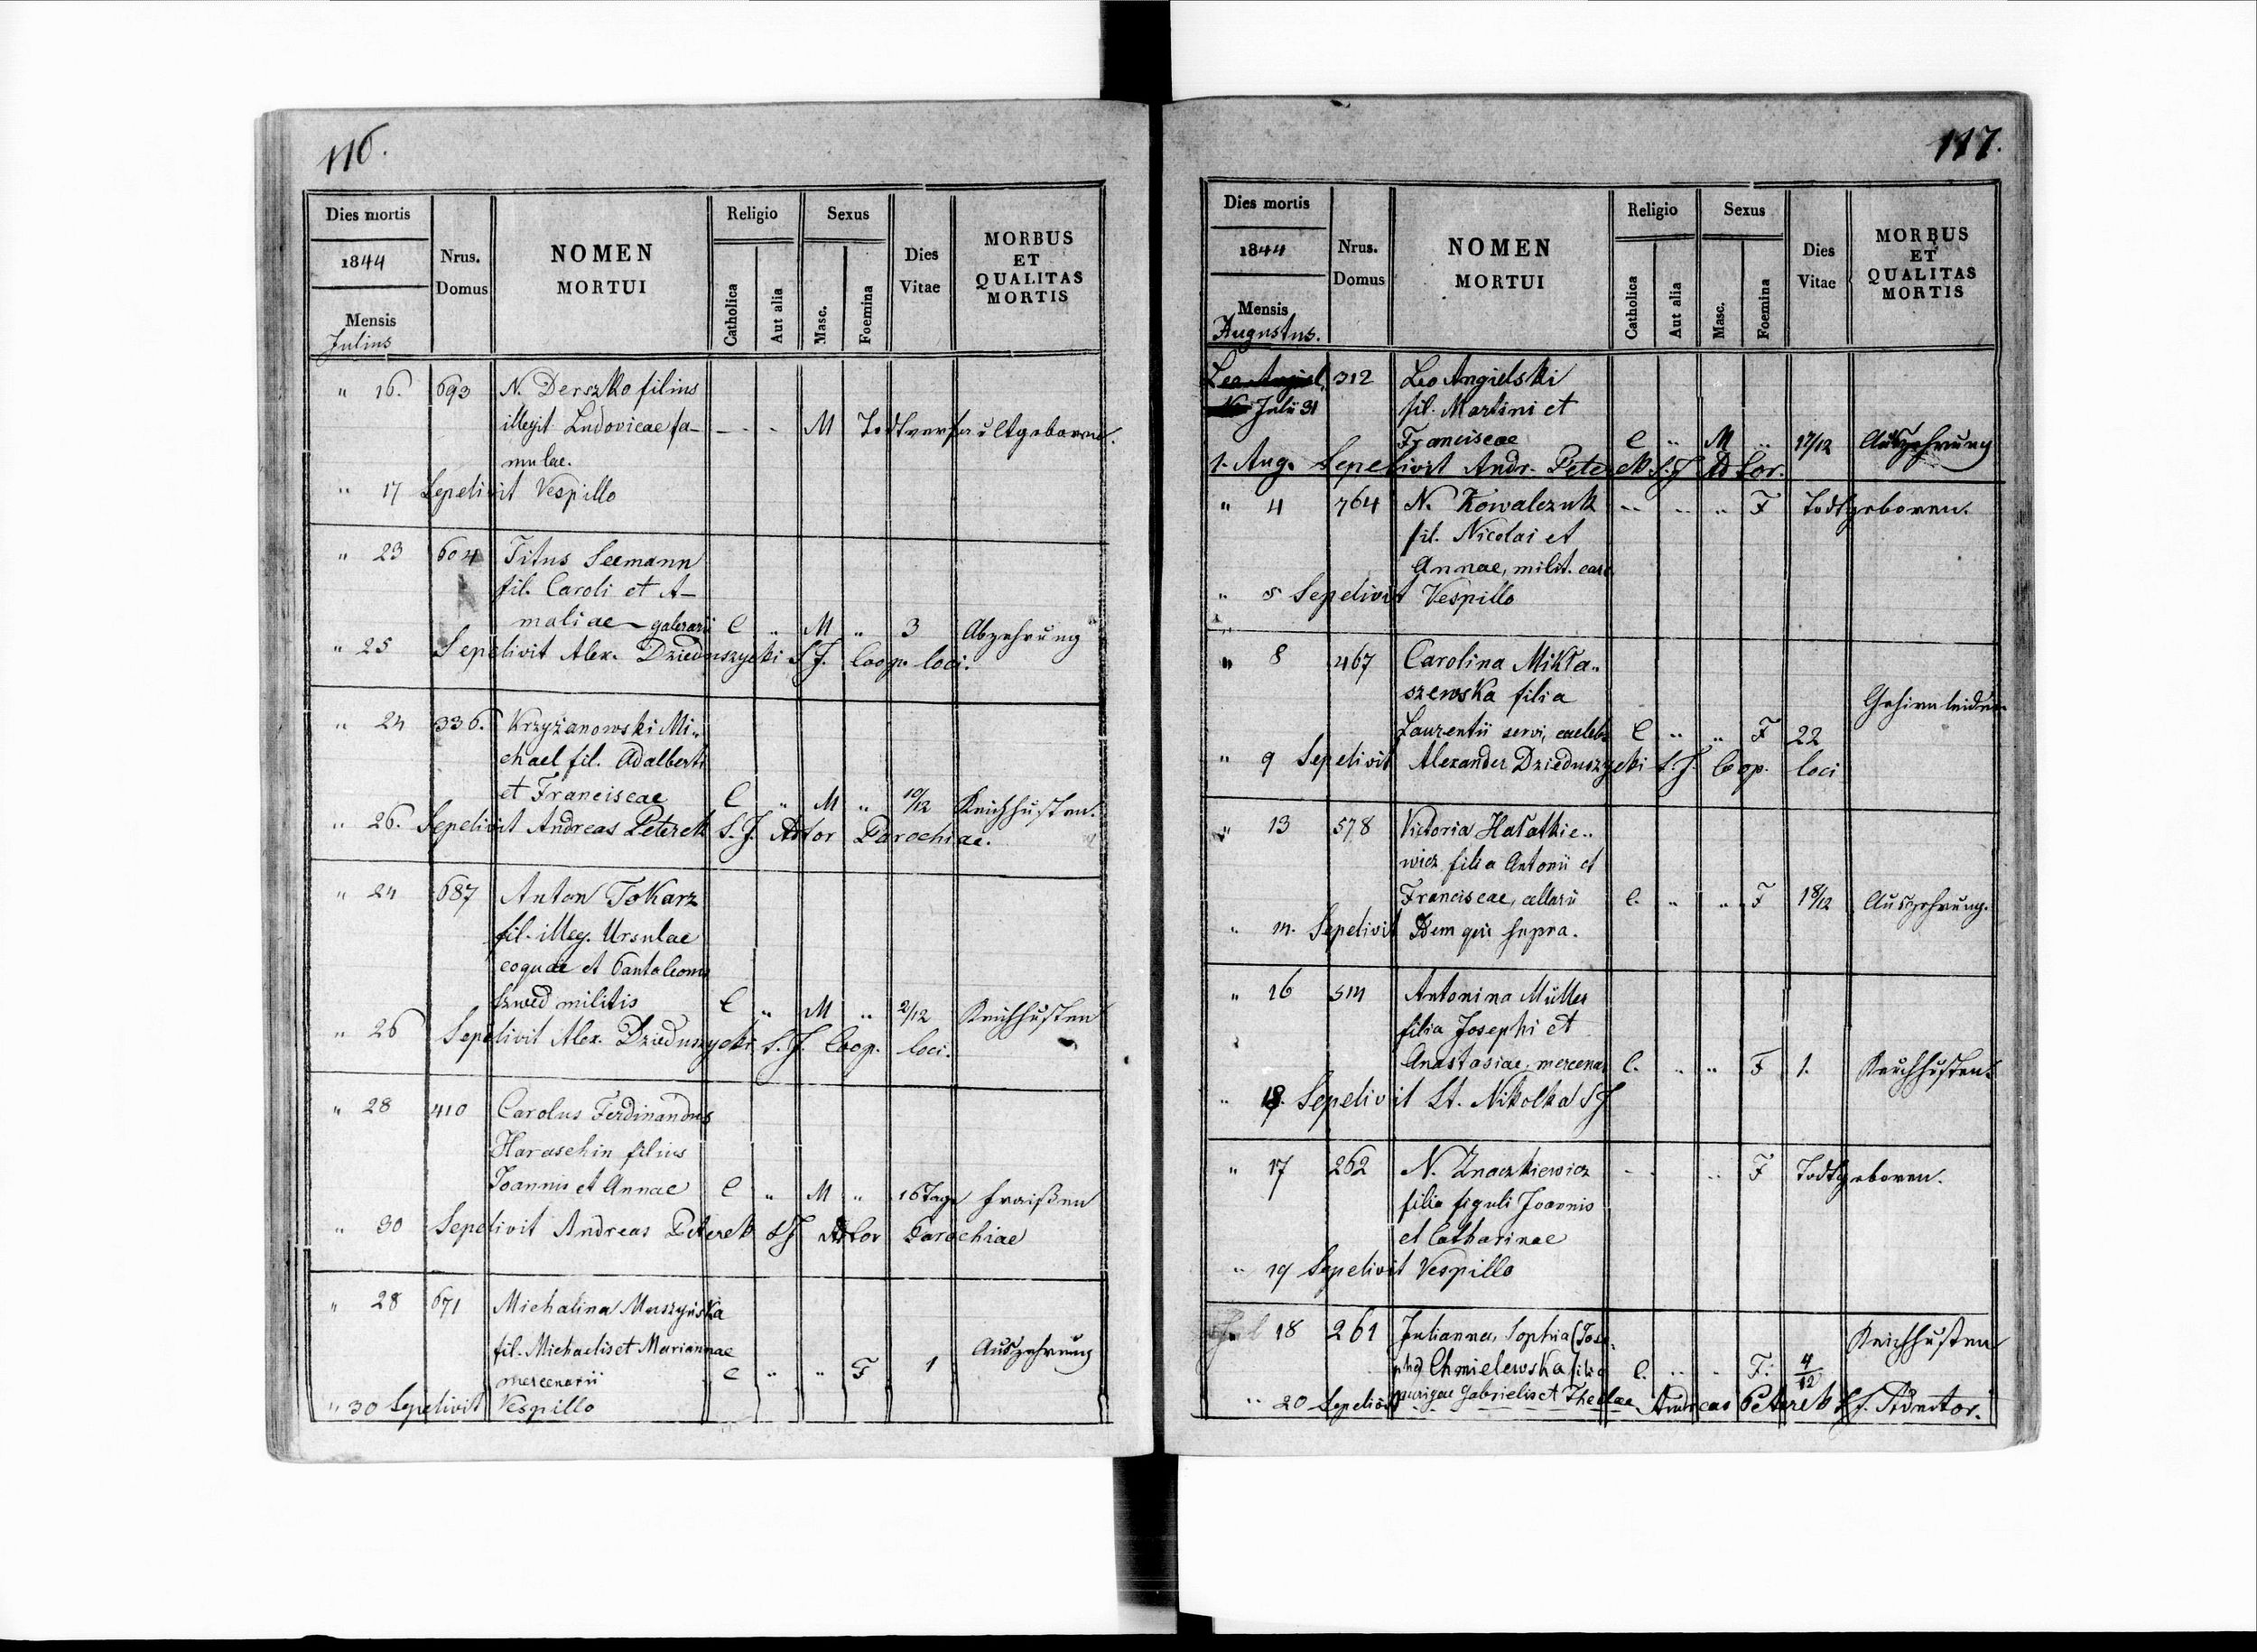 116.
Dies mortis
1844
Mensis
Julius
Nrus.
Domus
NOMEN
MORTUI
Religio
Catholica
Aut alia
Sexus
Masc.
Foemina
Dies
Vitae
MORBUS
ET
QUALITAS
MORTIS
" 16. 693 N. Derszko filius
illegit. Ludovicae fa-
- - - M Todtverfaultgeboren.
mulae.
" 17 Sepelivit Vespillo
" 23 604 Titus Seemann
fil. Caroli et A-
maliae - galerarii C " M " 3 Abzehrung
" 25 Sepelivit Alex. Dzieduszycki S.J. Coop. loci.
" 24 336. Krzyżanowski Mi-
chael fil. Adalberti
et Franciscae C " M " 10/12 Keichhusten.
" 26. Sepelivit Andreas Peterek S.J. Adtor Parochiae.
" 24 687 Anton Tokarz
fil. illeg. Ursulae
coquae et Pantaleonis
Szwed militis C " M " 2/12 Keichhusten
" 26 Sepelivit Alex. Dzieduszycki S.J. Coop. loci.
" 28 410 Carolus Ferdinandus
Haraschin filius
Joannis et Annae C " M " 16 Tage Fraißen
" 30 Sepelivit Andreas Peterek SJ Adtor Parochiae
" 28 671 Michalina Muszyńska
fil. Michaelis et Mariannae
mercenarii C " " F 1 Auszehrung
" 30 Sepelivit Vespillo
117.
Dies mortis
1844
Mensis
Augustus.
Nrus.
Domus
NOMEN
MORTUI
Religio
Catholica
Aut alia
Sexus
Masc.
Foemina
Dies
Vitae
MORBUS
ET
QUALITAS
MORTIS
Leo Angiel. 312 Leo Angielski
Julii 31 fil. Martini et
Franciscae C " M " 17/12 Auszehrung
1. Aug. Sepelivit Andr. Peterek S.J. Adtor.
" 4 764 N. Kowalczuk -- -- " F Todtgeboren.
fil. Nicolai et
Annae, milit.
" 5 Sepelivit Vespillo
" 8 467 Carolina Mikła-
szewska filia
Laurentii servi, caelebs C " " F 22 Gehirnleiden
" 9 Sepelivit Alexander Dzieduszycki S.J. Coop. loci
" 13 578 Victoria Hałatkie-
wicz filia Antonii et
Franciscae, cellarii C. " " F 18/12 Auszehrung.
" 14. Sepelivit Idem qui supra.
" 16 514 Antonina Müller
filia Josephi et
Anastasiae, mercena. C. " " F 1. Keuchhusten.
" 18. Sepelivit St. Nikolka SJ
" 17 262 N. Znaczkiewicz - - " F Todtgeboren.
filia figuli Joannis
et Catharinae
" 19 Sepelivit Vespillo
18 261 Julianna, Sophia (Jose-
pha) Chmielewska filia C. " " F. 4/12 Keichhusten
aurigae Gabrielis et Theclae
" 20 Sepelivit Andreas Peterek S.J. Admtor.